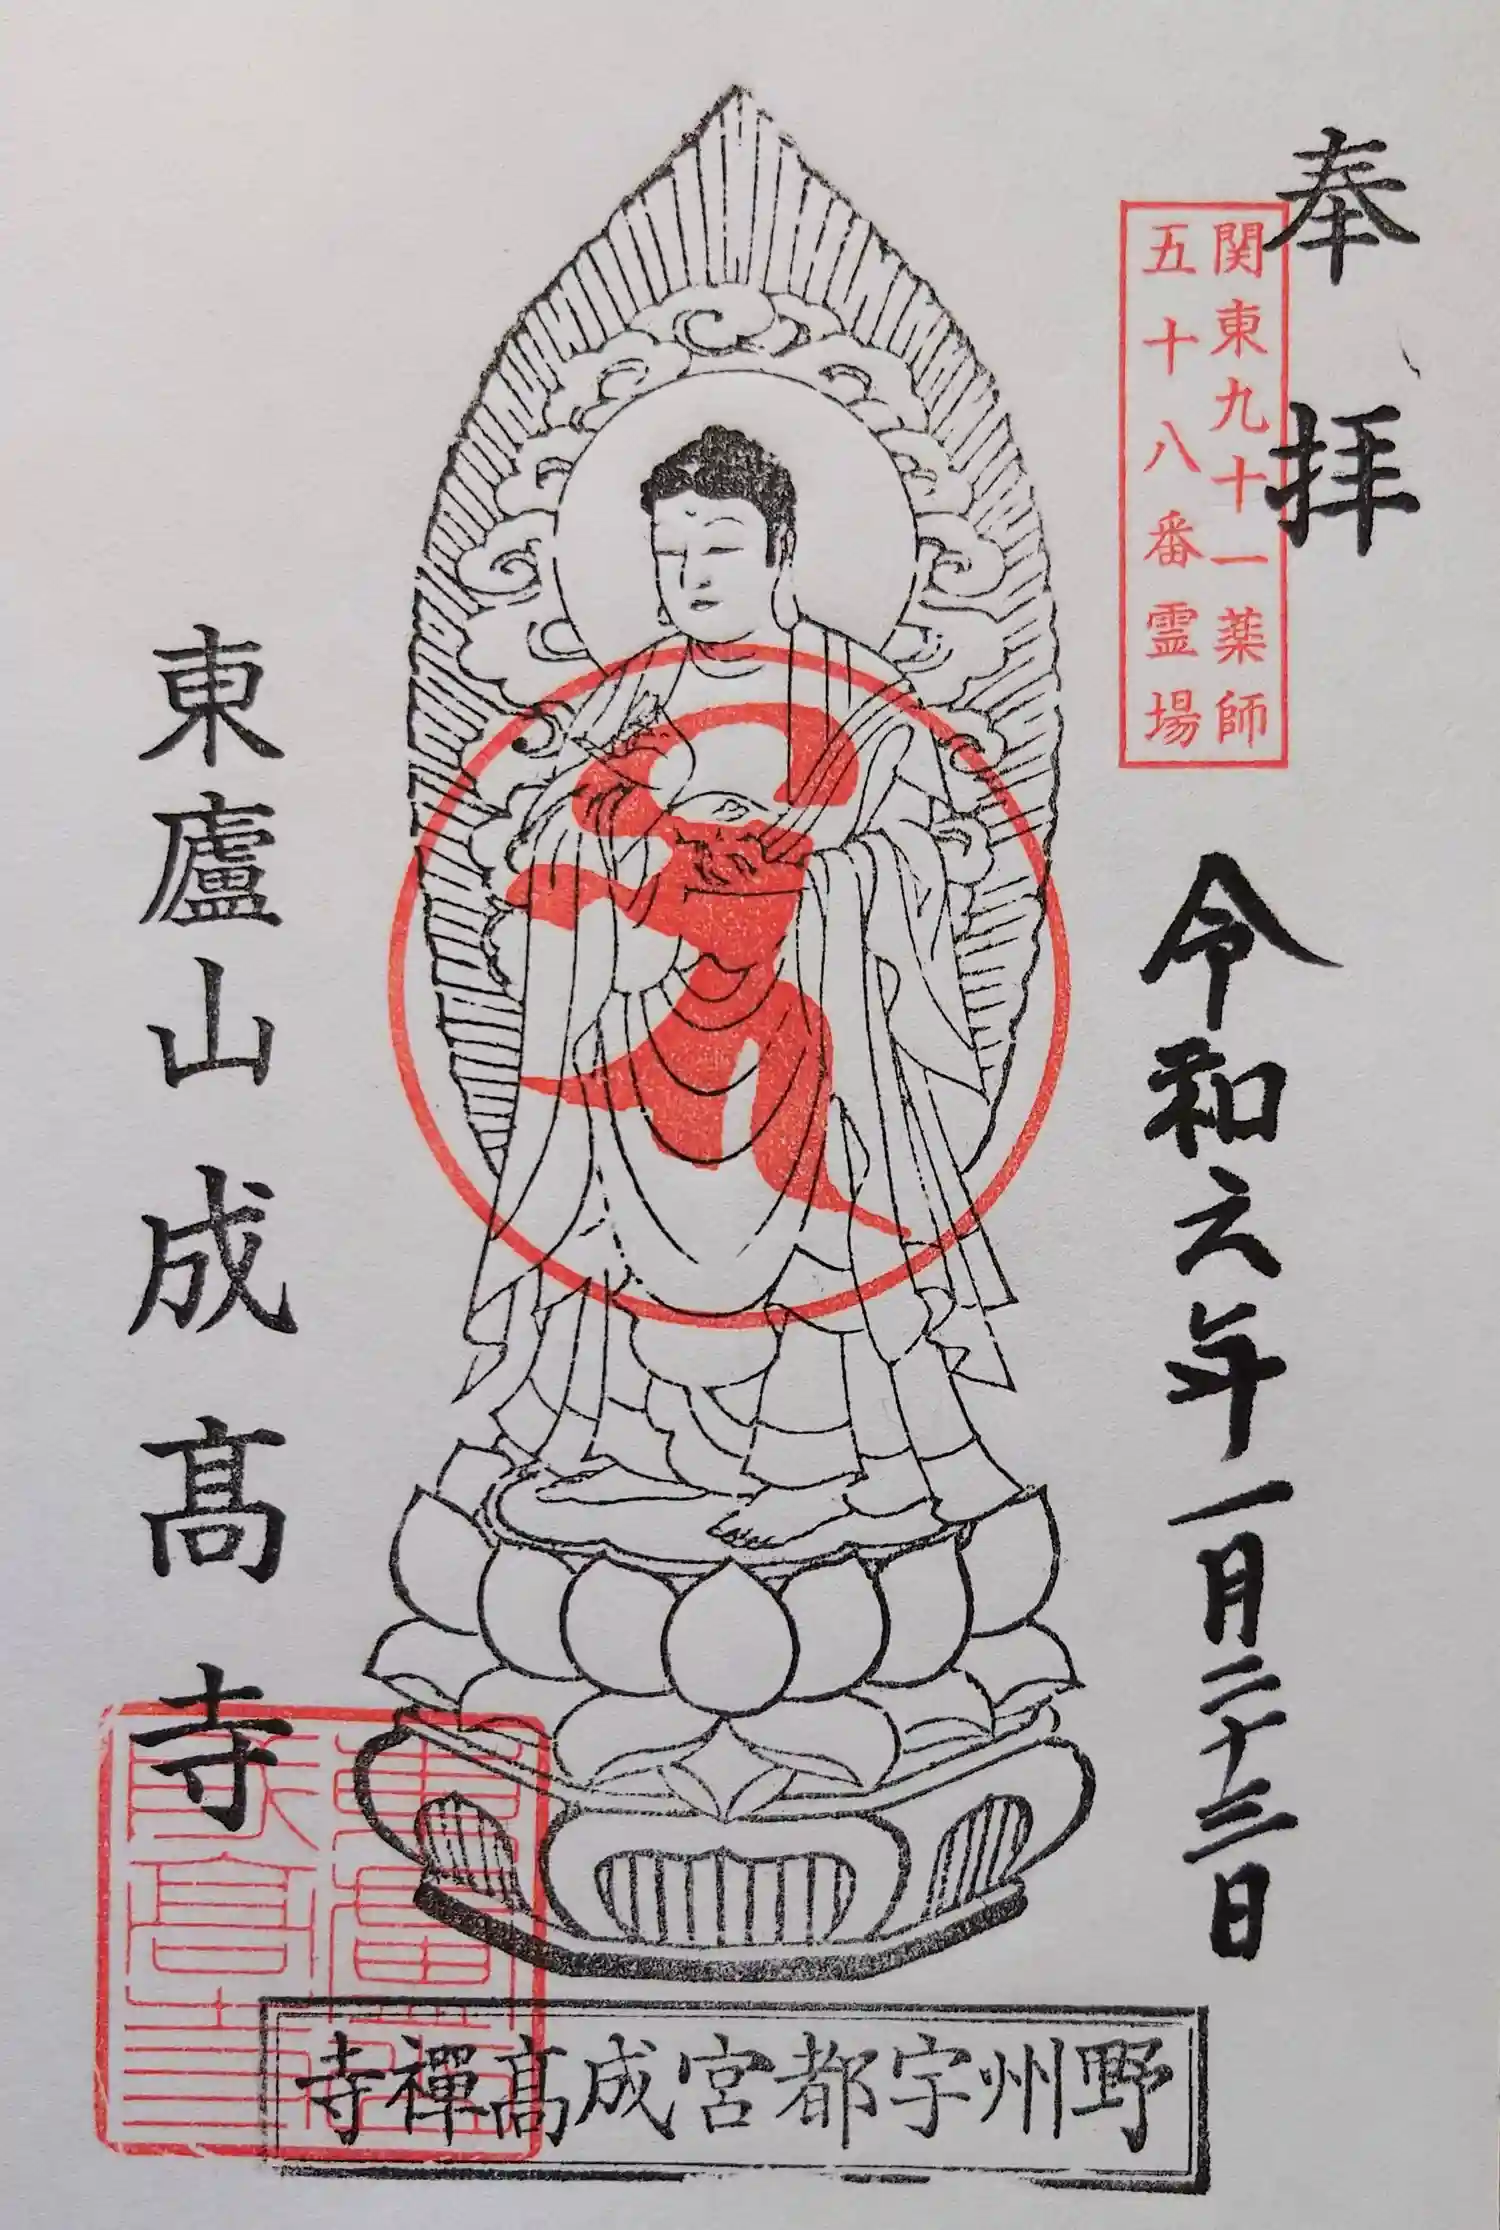 奉拝
関東九十一薬師
五十八番霊場
令和六年一月二十三日
東廬山成髙寺
野州宇都宮成髙禪寺